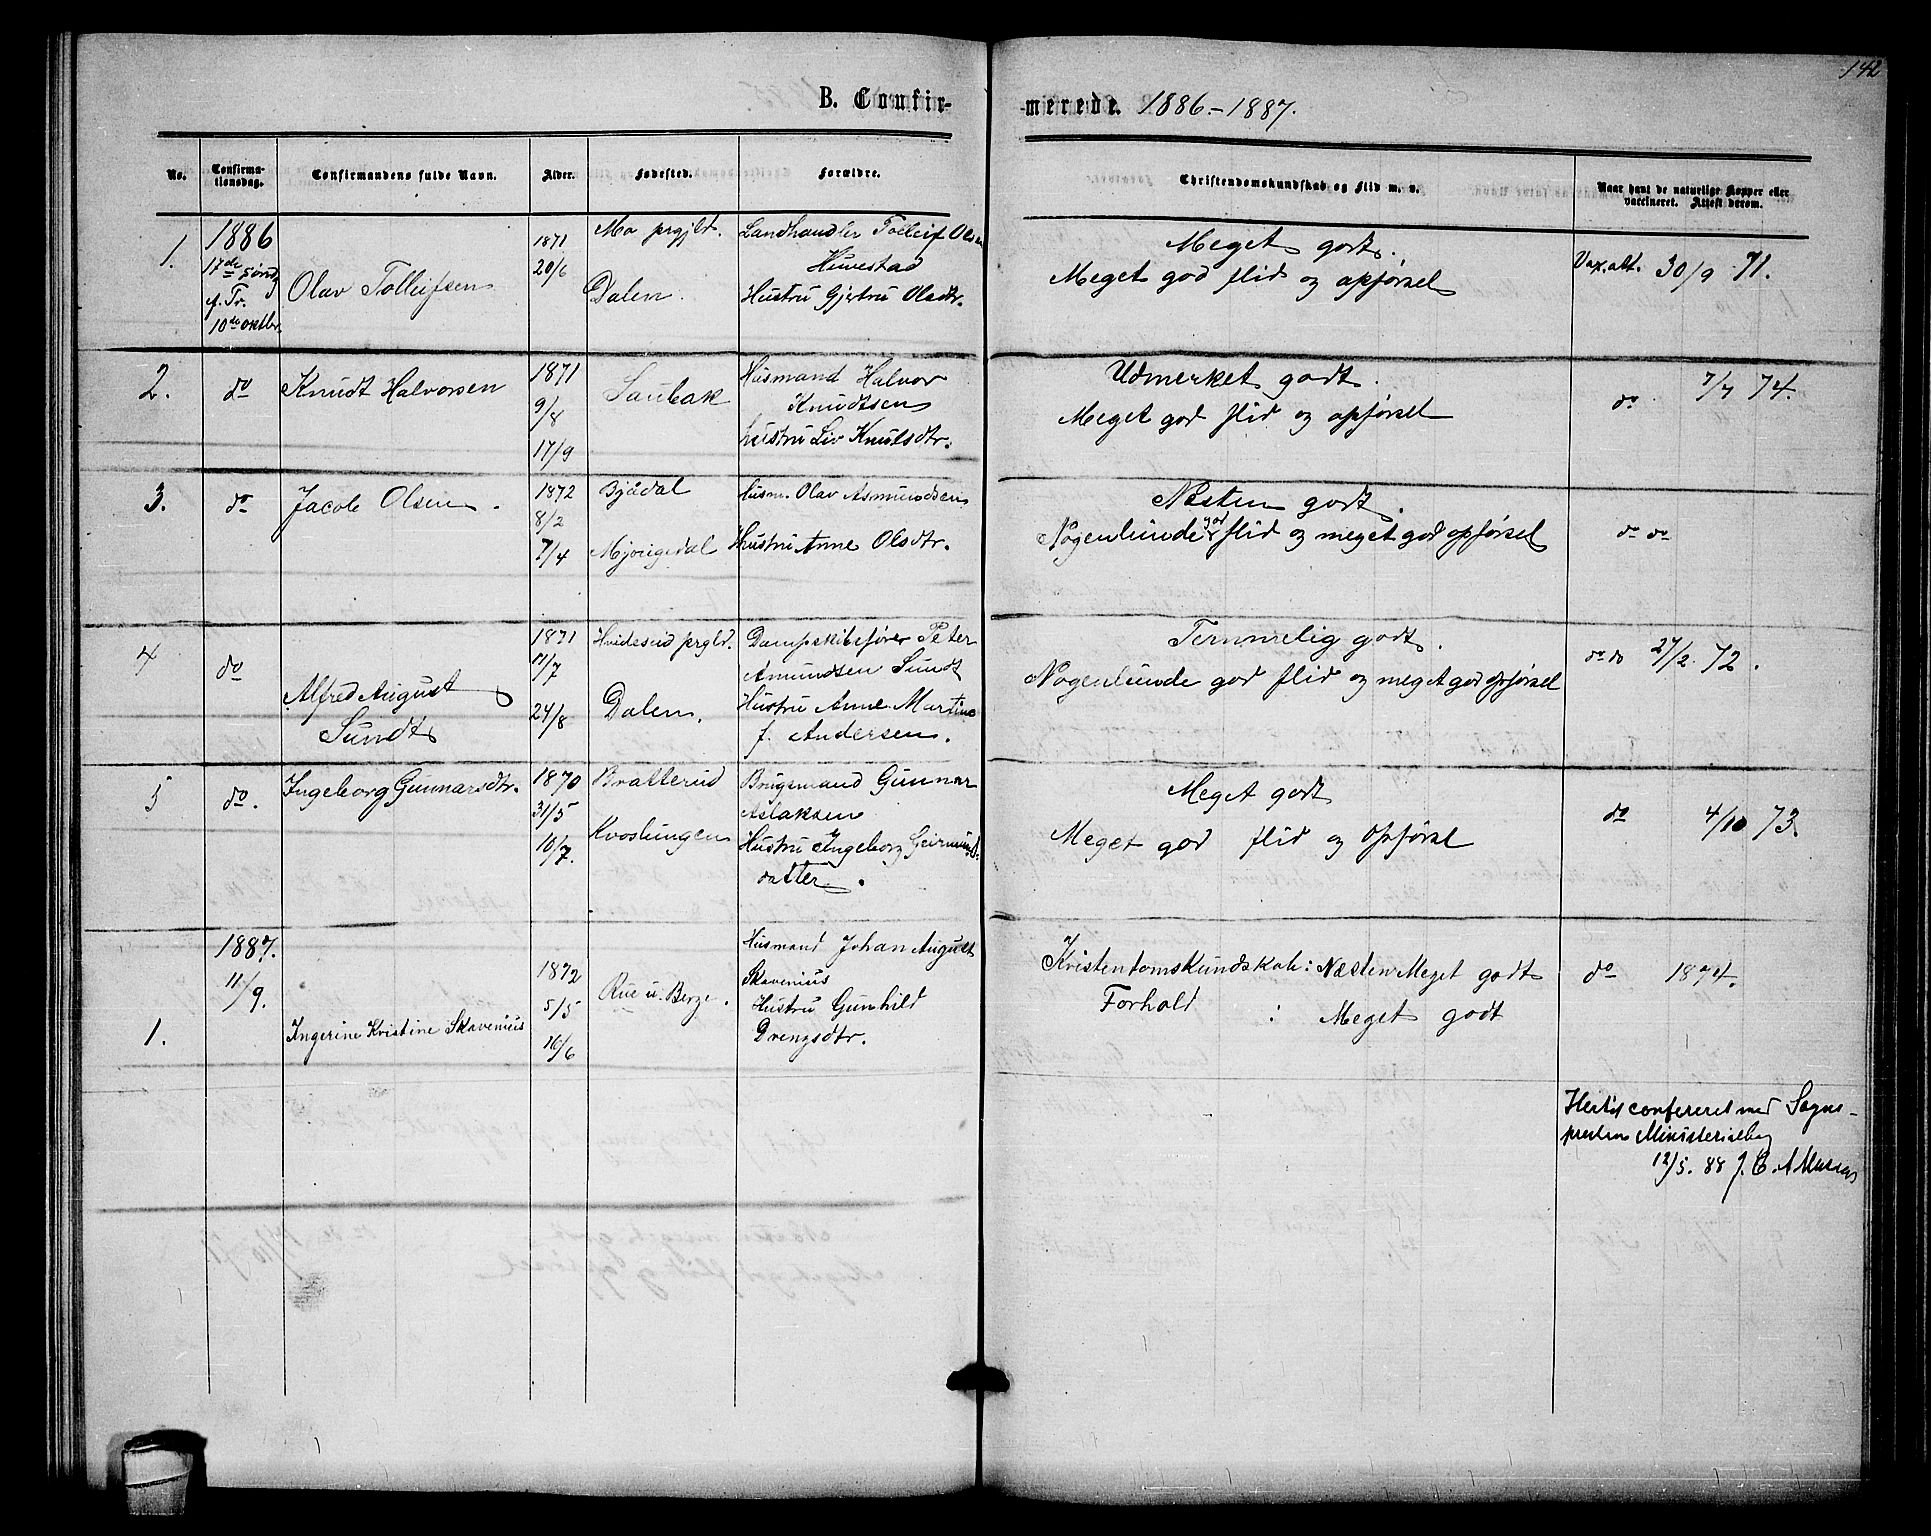 142
B. Confir-
merede. 1886-1887.
No.
Confirma-
tionsdag.
Confirmandens fulde Navn.
Alder.
Fødested.
Forældre.
Christendomskundskab og Flid m. v.
Naar havt de naturlige Kopper eller
vaccineret. Attest derom.
1.
1886
17de sønd
f. Tr.
10de oktbr.
Olav Tolleifsen
1871
20/6
Mo prgjld.
Dalen.
Landhandler Tolleif Olsen
Huvestad
Hustru Gjertru Olsdtr.
Meget godt.
Meget god flid og opførsel
Vax. att. 30/9 71.
2.
do
Knudt Halvorsen
1871
9/8
17/9
Saubak
Husmand Halvor
Knudtsen
hustru Liv Knutsdtr.
Udmerket godt.
Meget god flid og opførsel
do 7/7 74.
3.
do
Jacob Olsen.
1872
8/2
7/4
Bjådal
Husm. Olav Asmundsen
Hustru Anne Olsdtr.
Næsten godt.
Nogenlunde god flid og meget god opførsel
do do
4
do
Alfred August
Sundt
1871
11/7
24/8
Hvidesud prgld.
Dalen.
Dampskibsfører Peter
Amundsen Sundt
Hustru Anne Martine
f. Andersen.
Temmelig godt.
Nogenlunde god flid og meget god opførsel
do do 27/2 72.
5
do.
Ingeborg Gunnarsdtr.
1870
31/5
10/7.
Bratterud
Kvoslungen
Brugsmand Gunnar
Aslaksen
Hustru Ingeborg Geirmunds
datter.
Meget godt
Meget god flid og opførsel
do 4/10 73
1887.
11/9.
1.
Ingerine Kristine Skavenius
1872
5/5
16/6
Rue u. Berge.
Husmand Johan August
Skavenius
Hustru Gunhild
Drengsdtr.
Kristentomskundskab: Næsten Meget godt
Forhold : Meget godt
do 1874.
Hertil confereret med Sogne-
prestens Ministerialbog
12/5. 88 J. C.